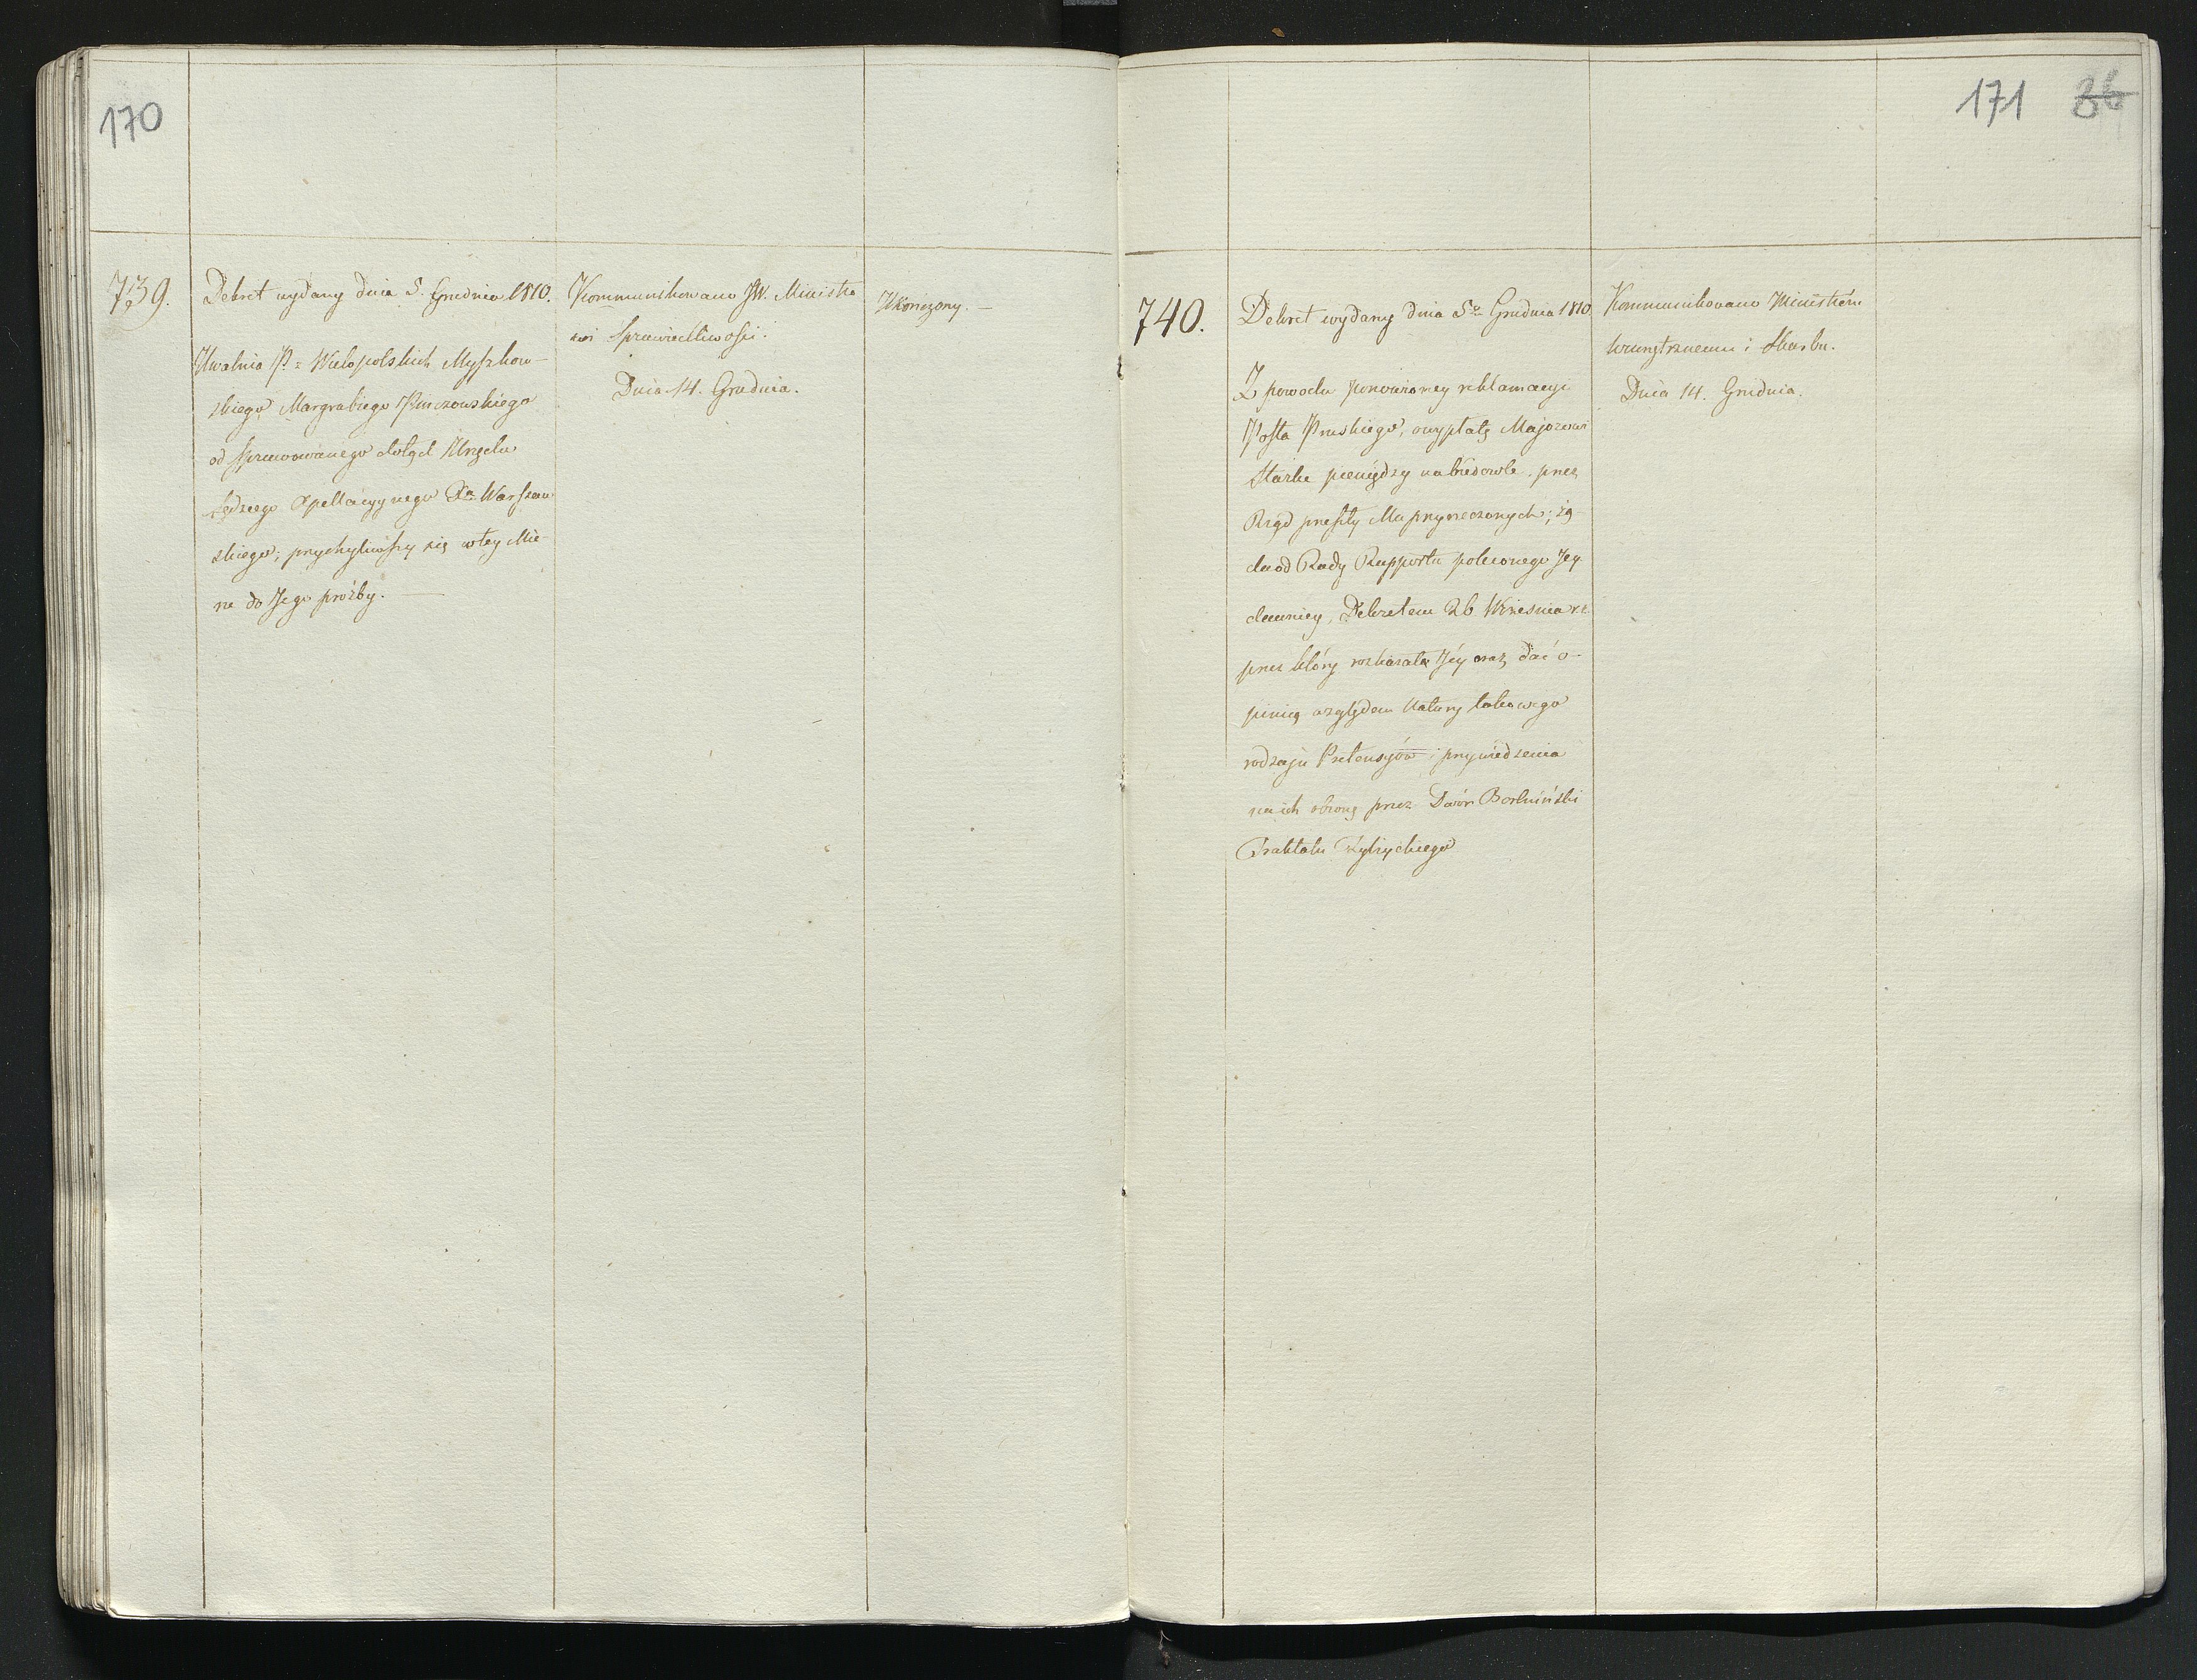 170
739.
Dekret wydany dnia 5. Grudnia 1810.
Uwalnia P. Wielopolskich Myszkow-
skiego Margrabiego Pinczowskiego
od sprawowanego dotąd Urzędu
Sędziego Apellacyynego Xa Warszaw
skiego; przychyliwszy się w tey Mie-
rze do Jego proźby. —
Kommunikowano JW. Ministro
wi Sprawiedliwości.
Dnia 14. Grudnia.
Ukończony. —
171 86
740.
Dekret wydany dnia 5o Grudnia 1810
Z powodu ponowioney reklamacyi
Posła Pruskiego, o wypłatę Majorowi
Starke pieniędzy na budowle przez
Rząd przeszły Mu przyrzeczonych; żą-
da od Rady Rapportu poleconego Jey
dawniey, Dekretem 26 Września r. z.
przez który rozkazała Jey oraz dać o-
pinią względem Natury takowego
rodzaju Pretensyów i przywiedzenia
na ich obronę przez Dwór Berliński
Traktatu Tylżyckiego
Kommunikowano Ministrom
Wewnętrznemu i Skarbu.
Dnia 14. Grudnia.